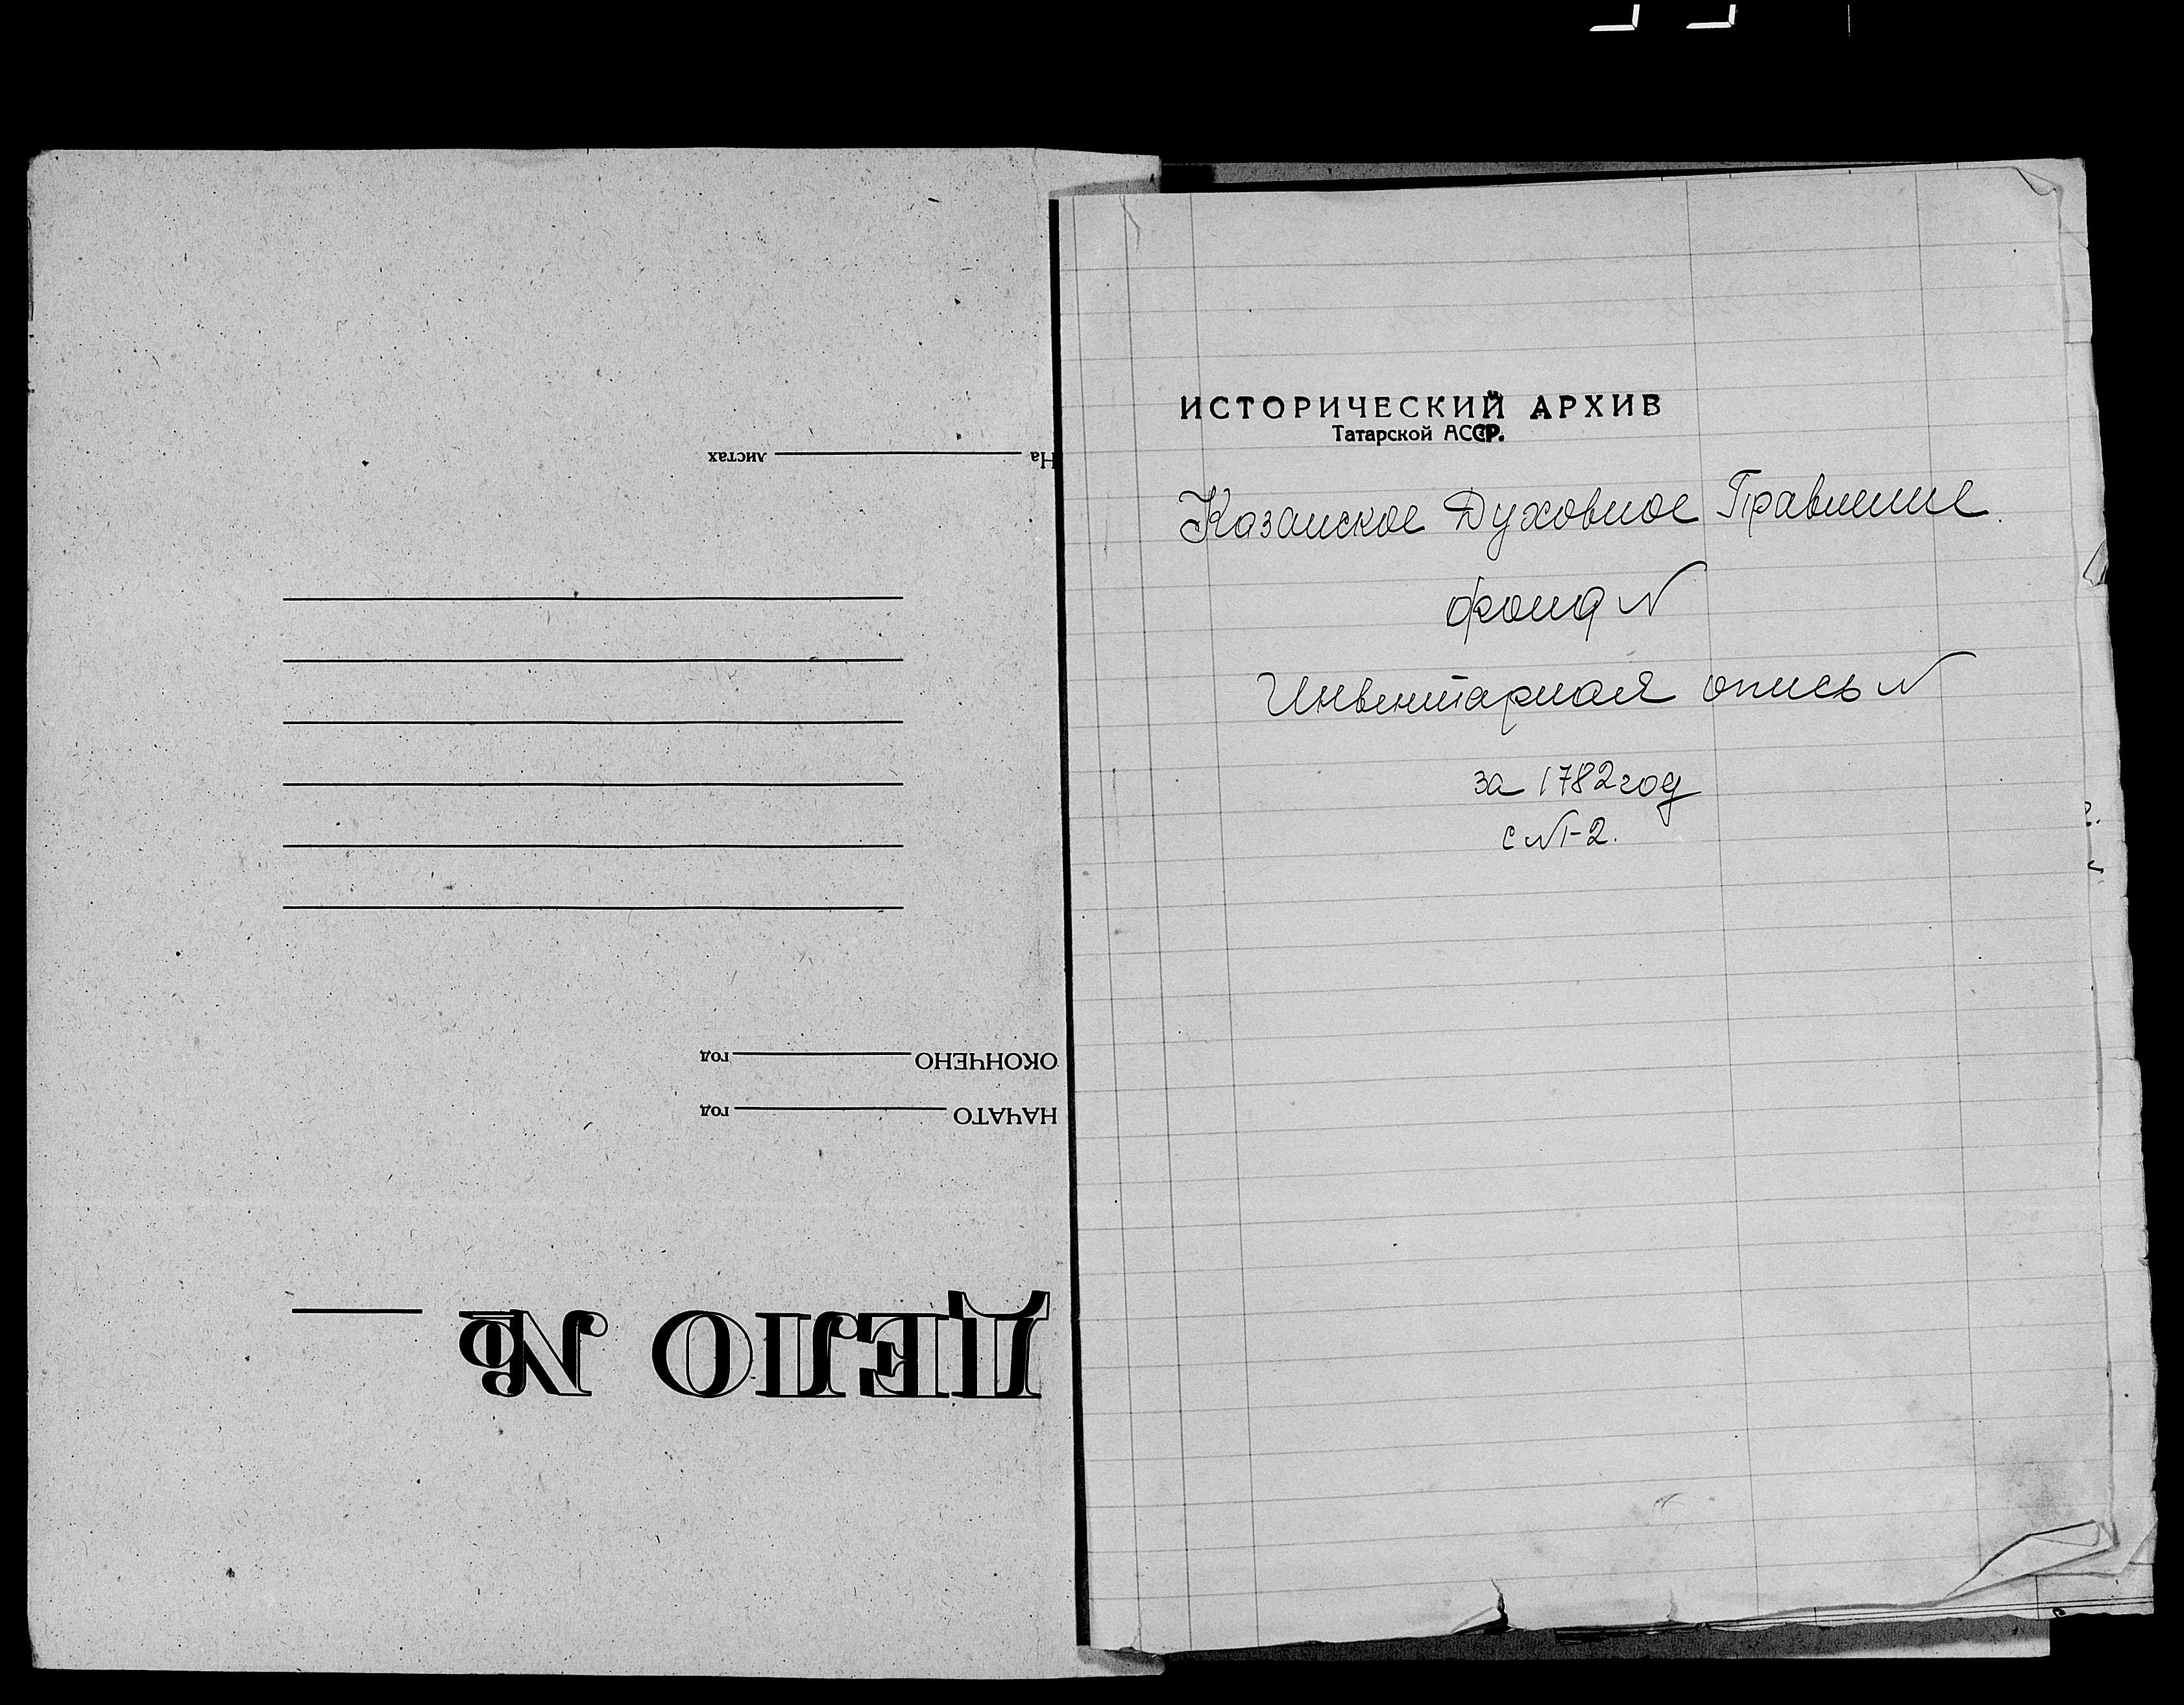 На листах
ОКОНЧЕНО год
НАЧАТО год
ДЕЛО №
ИСТОРИЧЕСКИЙ АРХИВ
Татарской АССР.
Казанское Духовное Правление.
фонд N
Инвентарная опись N
за 1782 год
с N 1-2.